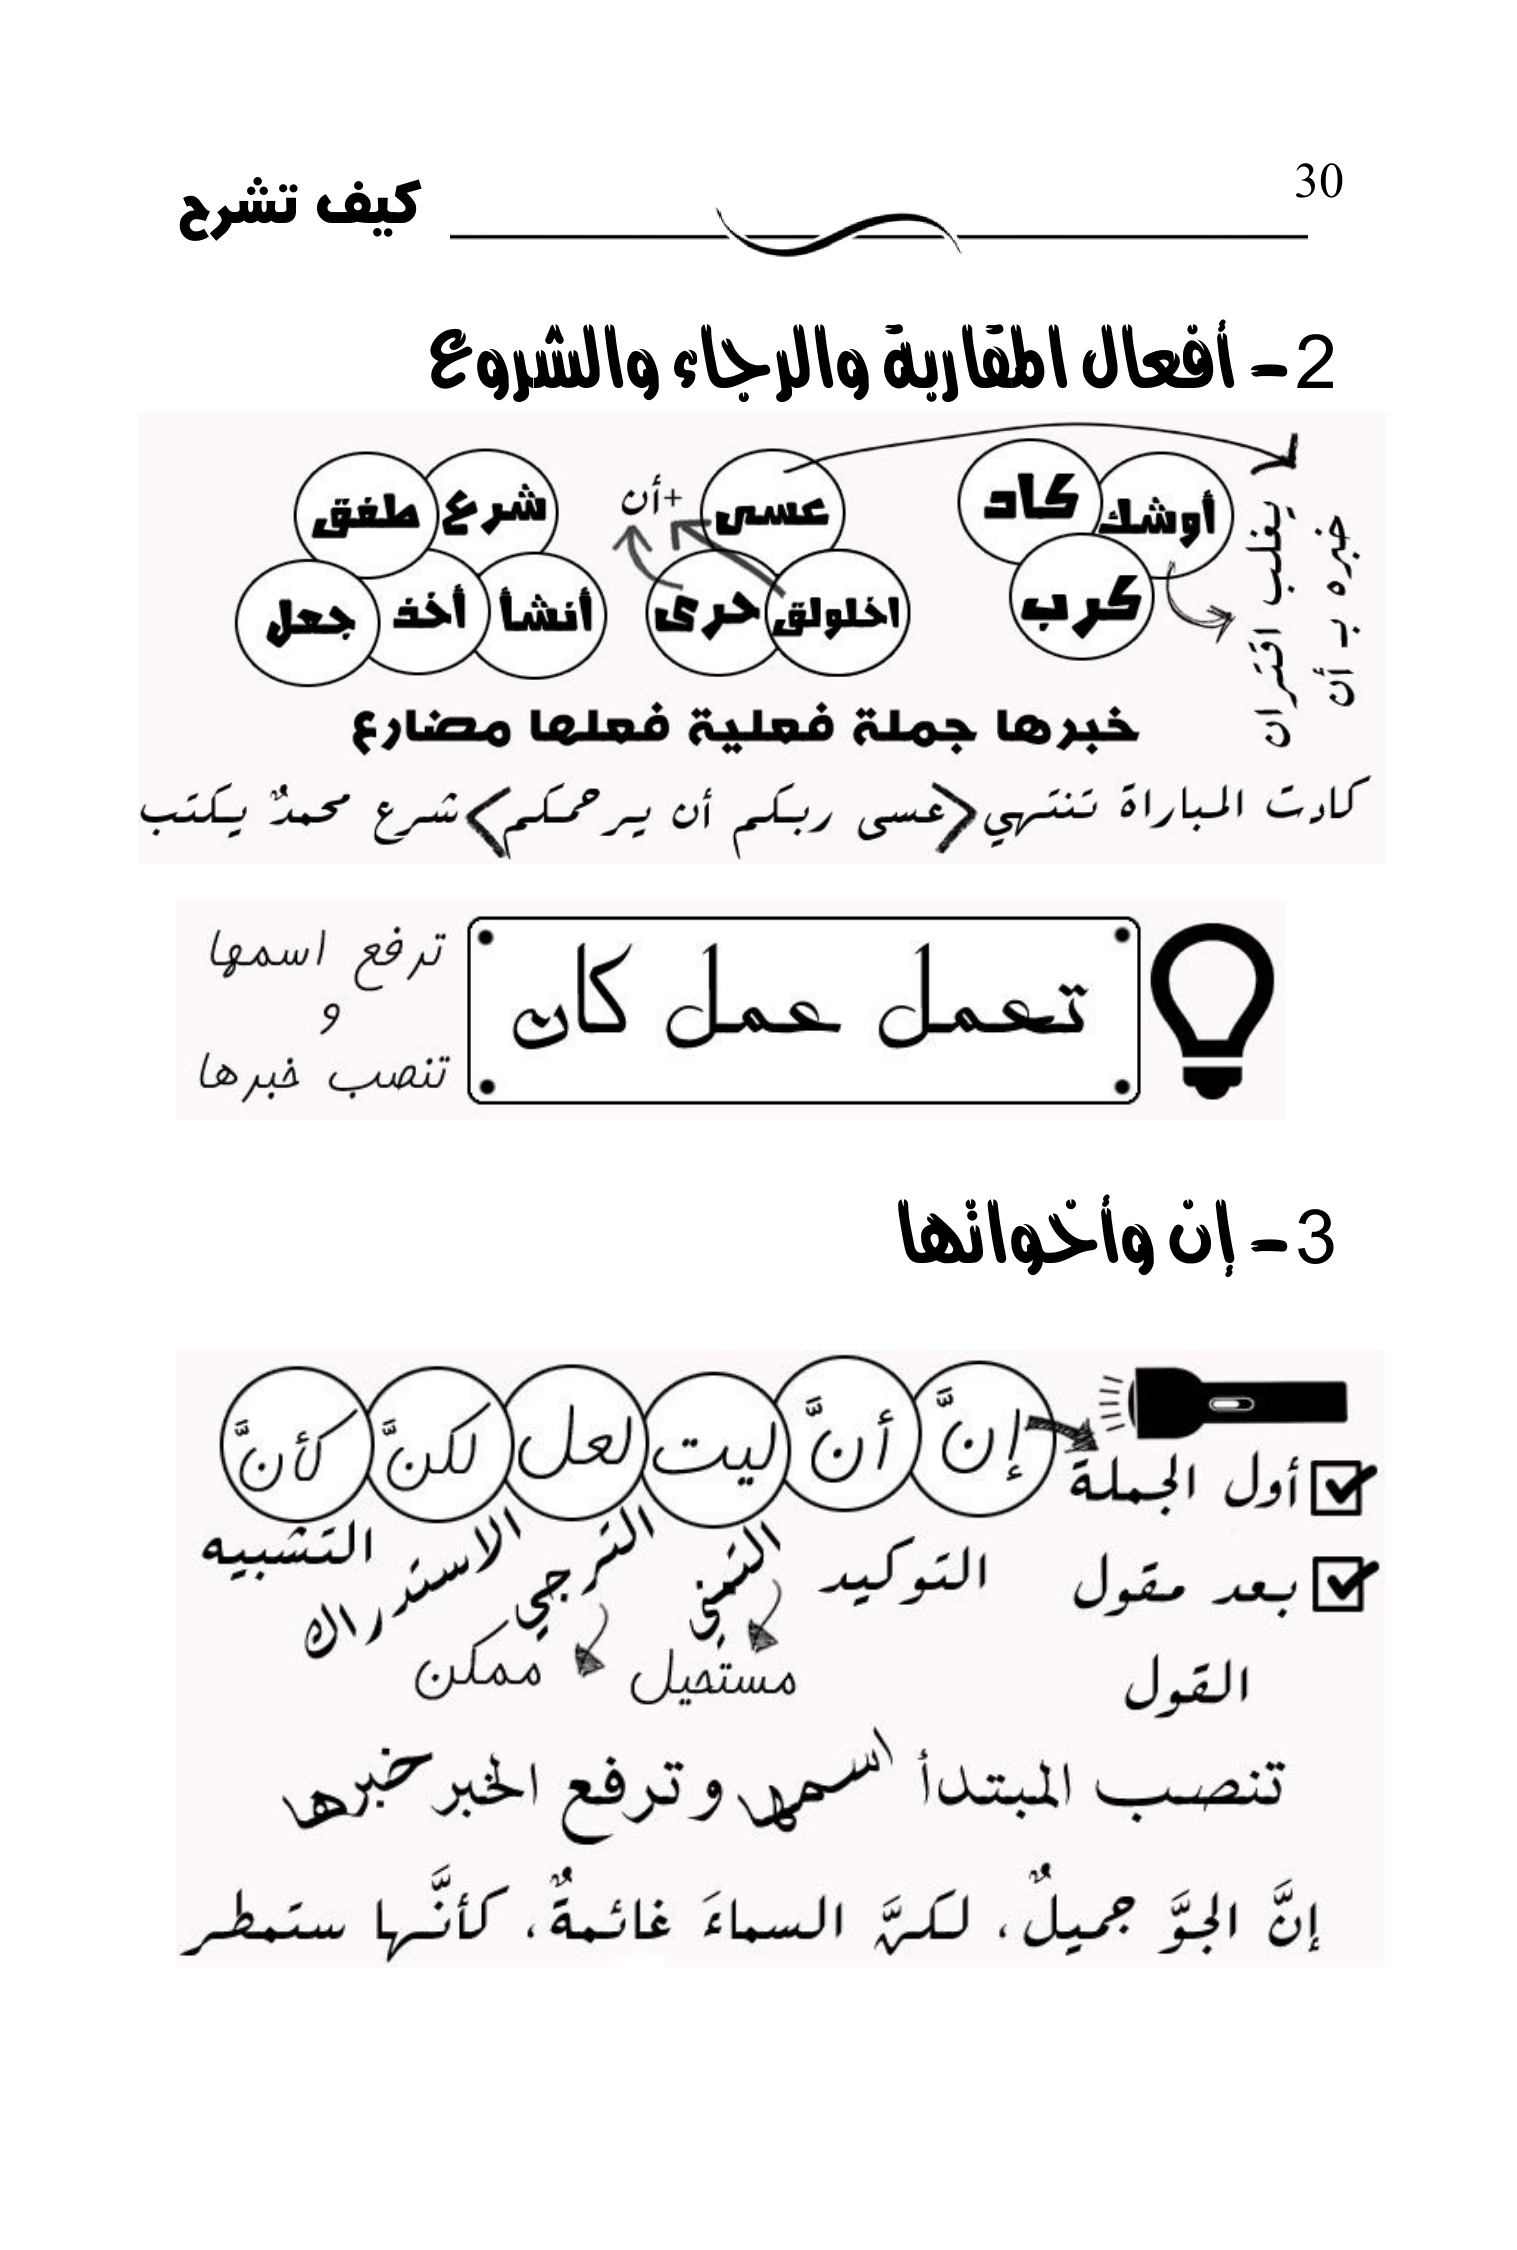 30
كيف تشرح
2- أفعال المقاربة والرجاء والشروع
أوشك كاد كرب
يغلب اقتران
خبره بـ أن
عسى +أن
اخلولق حرى
شرع طفق
أنشأ أخذ جعل
خبرها جملة فعلية فعلها مضارع
كادت المباراة تنتهي <عسى ربكم أن يرحمكم> شرع محمدٌ يكتب
تعمل عمل كان
ترفع اسمها
و
تنصب خبرها
3- إن وأخواتها
إنَّ أنَّ ليت لعل لكنَّ كأنَّ
أول الجملة
بعد مقول
القول
التوكيد التمني الترجي الاستدراك التشبيه
مستحيل ممكن
تنصب المبتدأ اسمها وترفع الخبر خبرها
إنَّ الجوَّ جميلٌ، لكنَّ السماءَ غائمةٌ، كأنَّها ستمطر